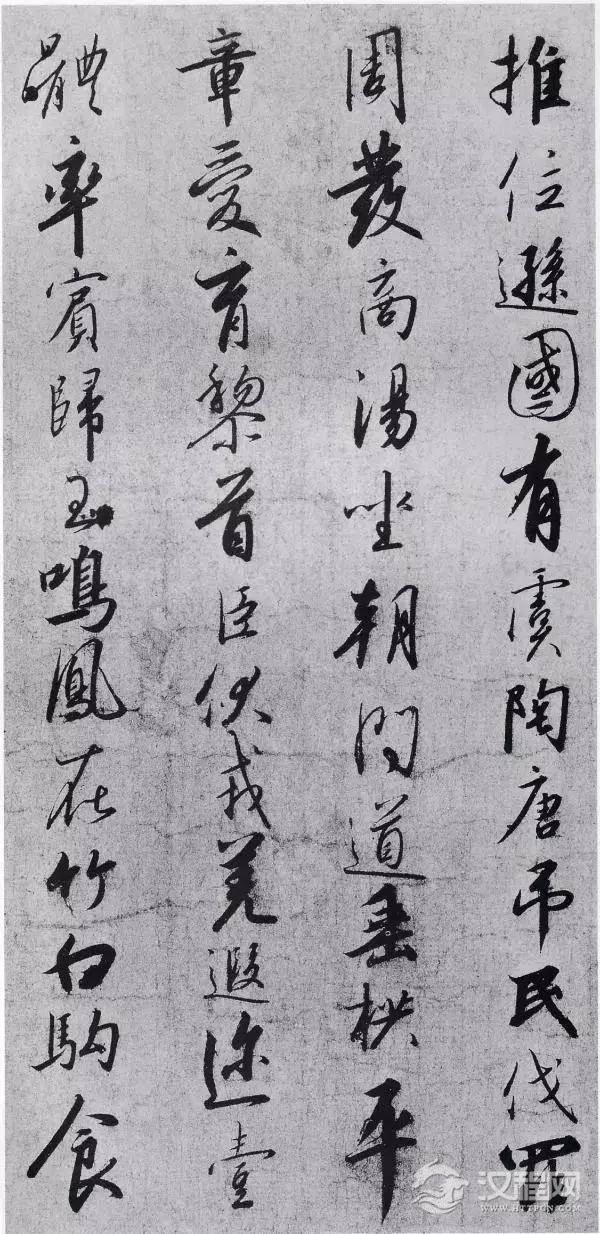 推位遜國有虞陶唐吊民伐罪
周發商湯坐朝問道垂拱平
章愛育黎首臣伏戎羌遐迩壹
體率賓歸王鳴鳳在竹白駒食
汉程网
WWW.HTTPCN.COM